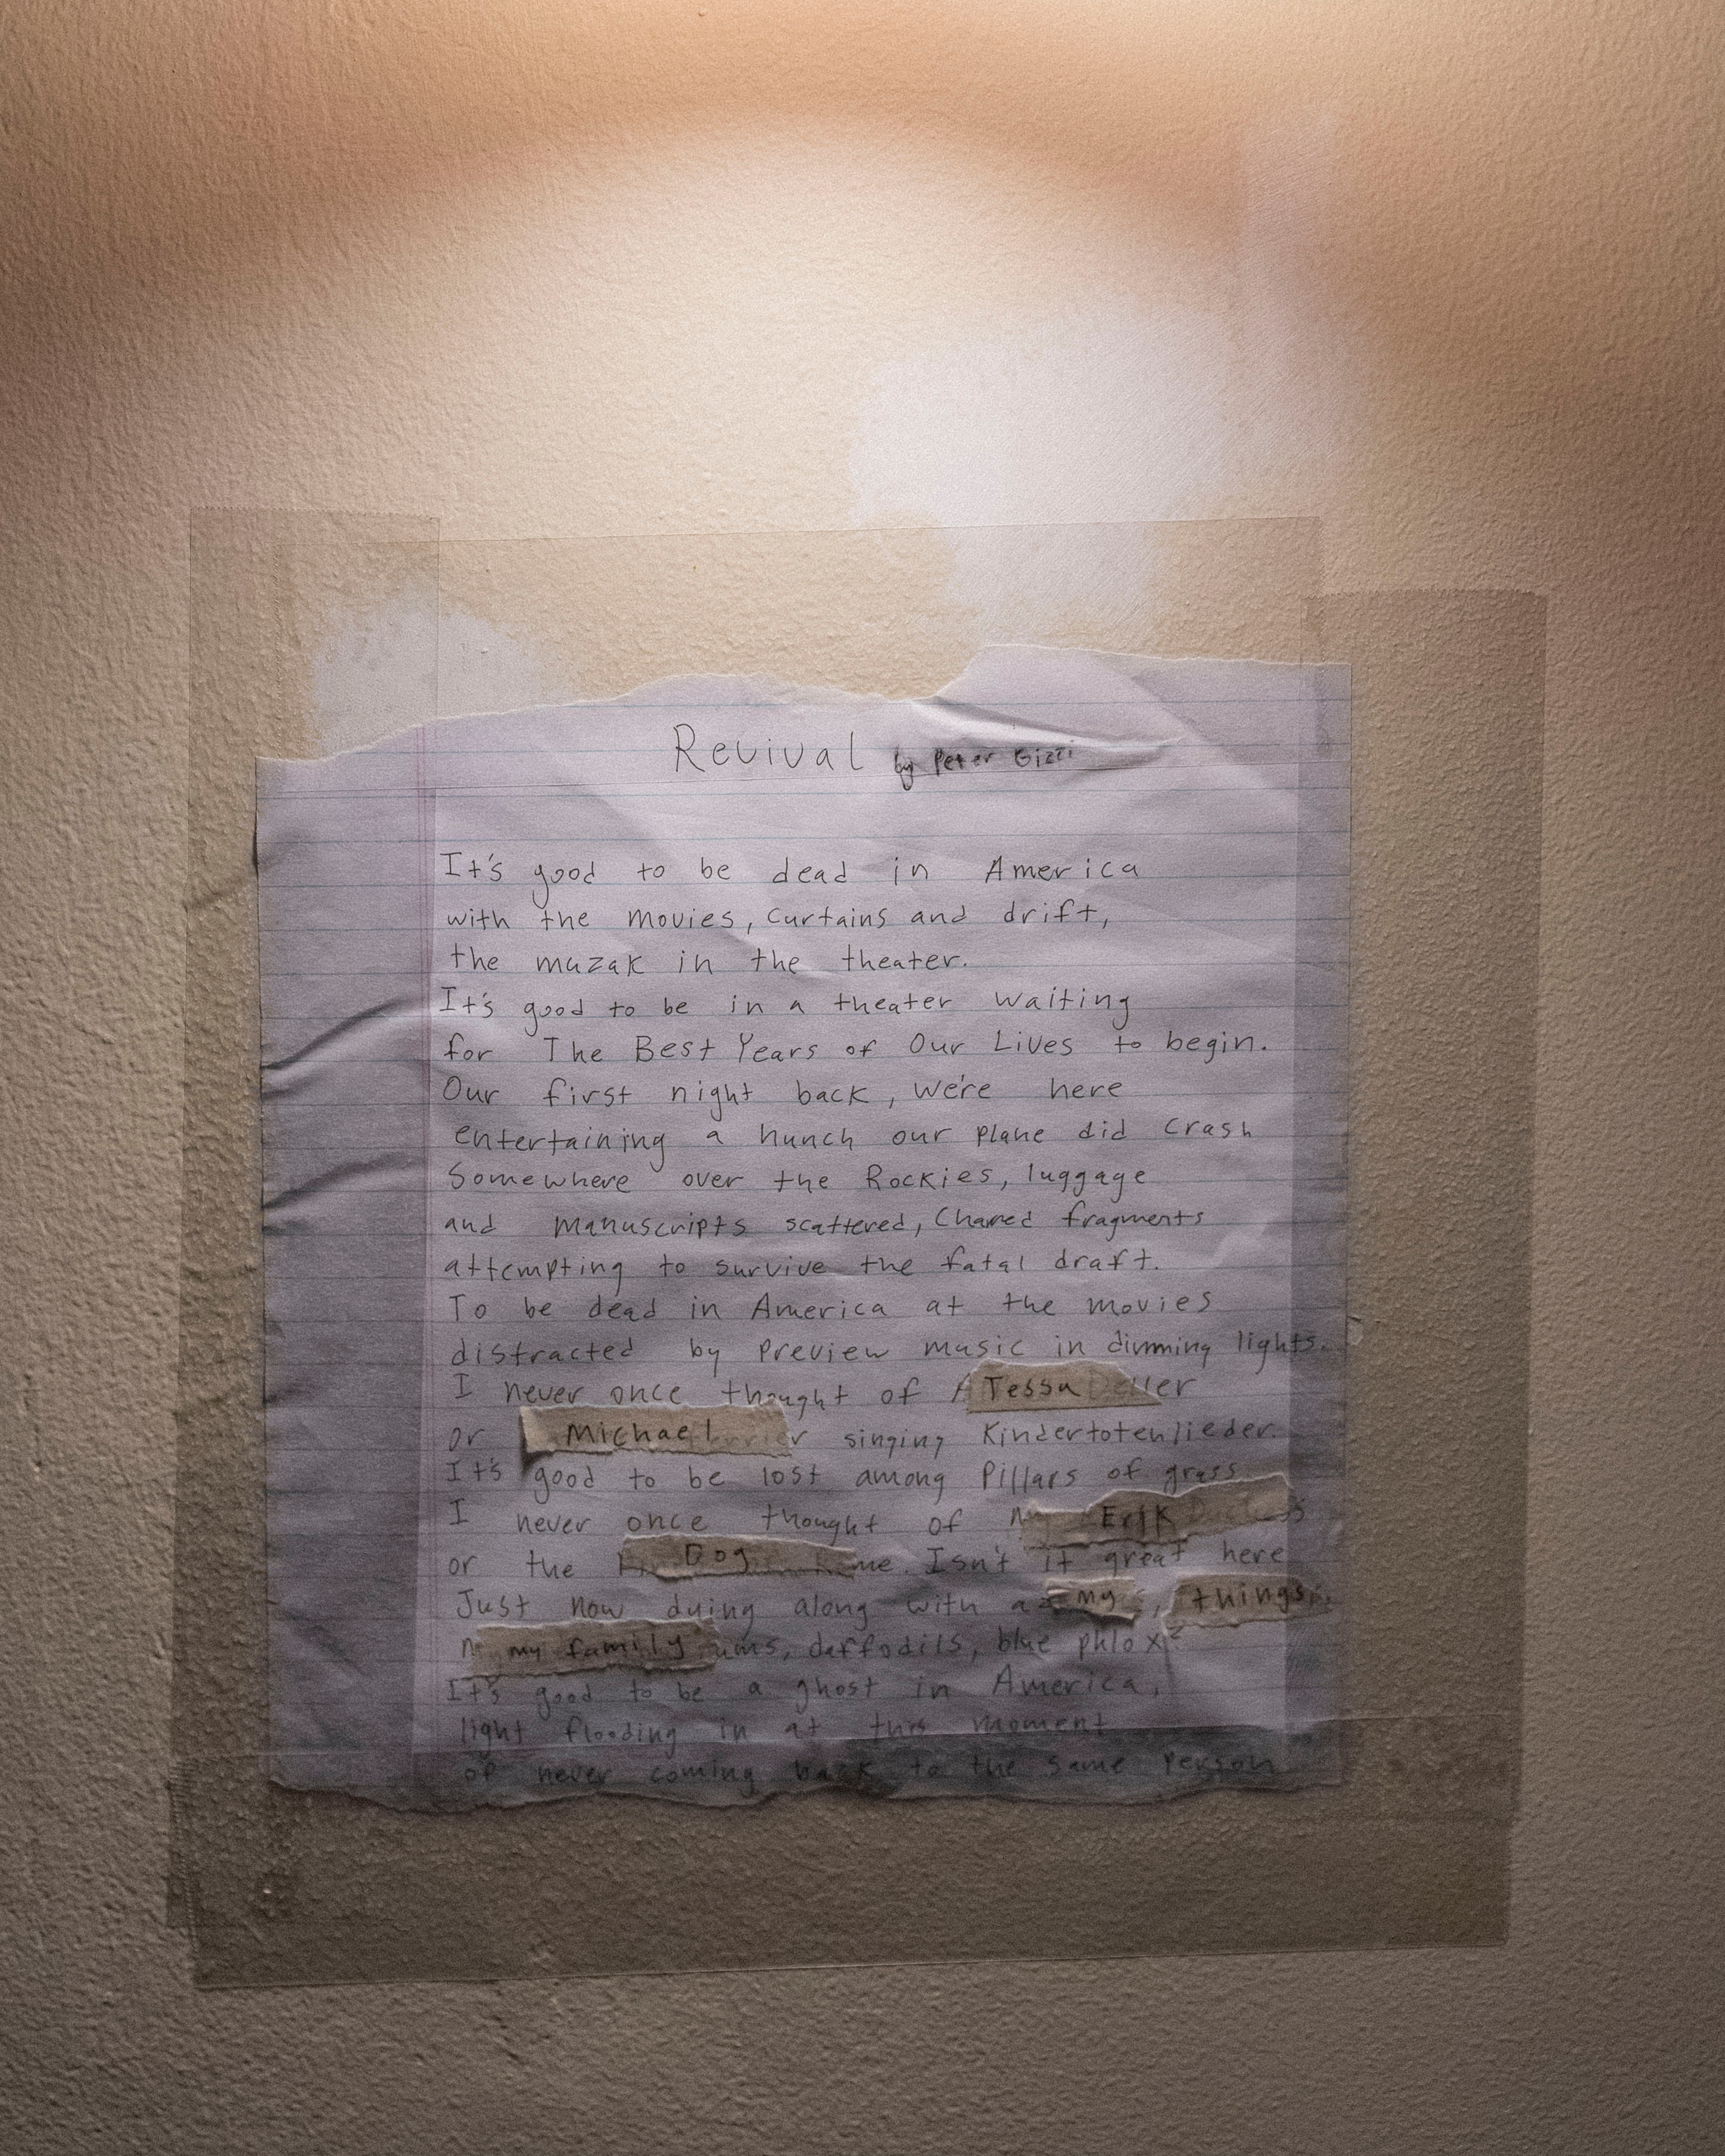 Revival by Peter Gizzi
It's good to be dead in America
with the movies, curtains and drift,
the muzak in the theater.
It's good to be in a theater waiting
for The Best Years of Our Lives to begin.
Our first night back, we're here
entertaining a hunch our plane did crash
Somewhere over the Rockies, luggage
and manuscripts scattered, charred fragments
attempting to survive the fatal draft.
To be dead in America at the movies
distracted by preview music in dimming lights.
I never once thought of Tessa
or Michael singing Kindertotenlieder.
It's good to be lost among pillars of grass
I never once thought of Erik
or the Dog Isn't it great here
Just now dying along with my things,
my family daffodils, blue phlox?
It's good to be a ghost in America,
light flooding in at this moment
of never coming back to the same person